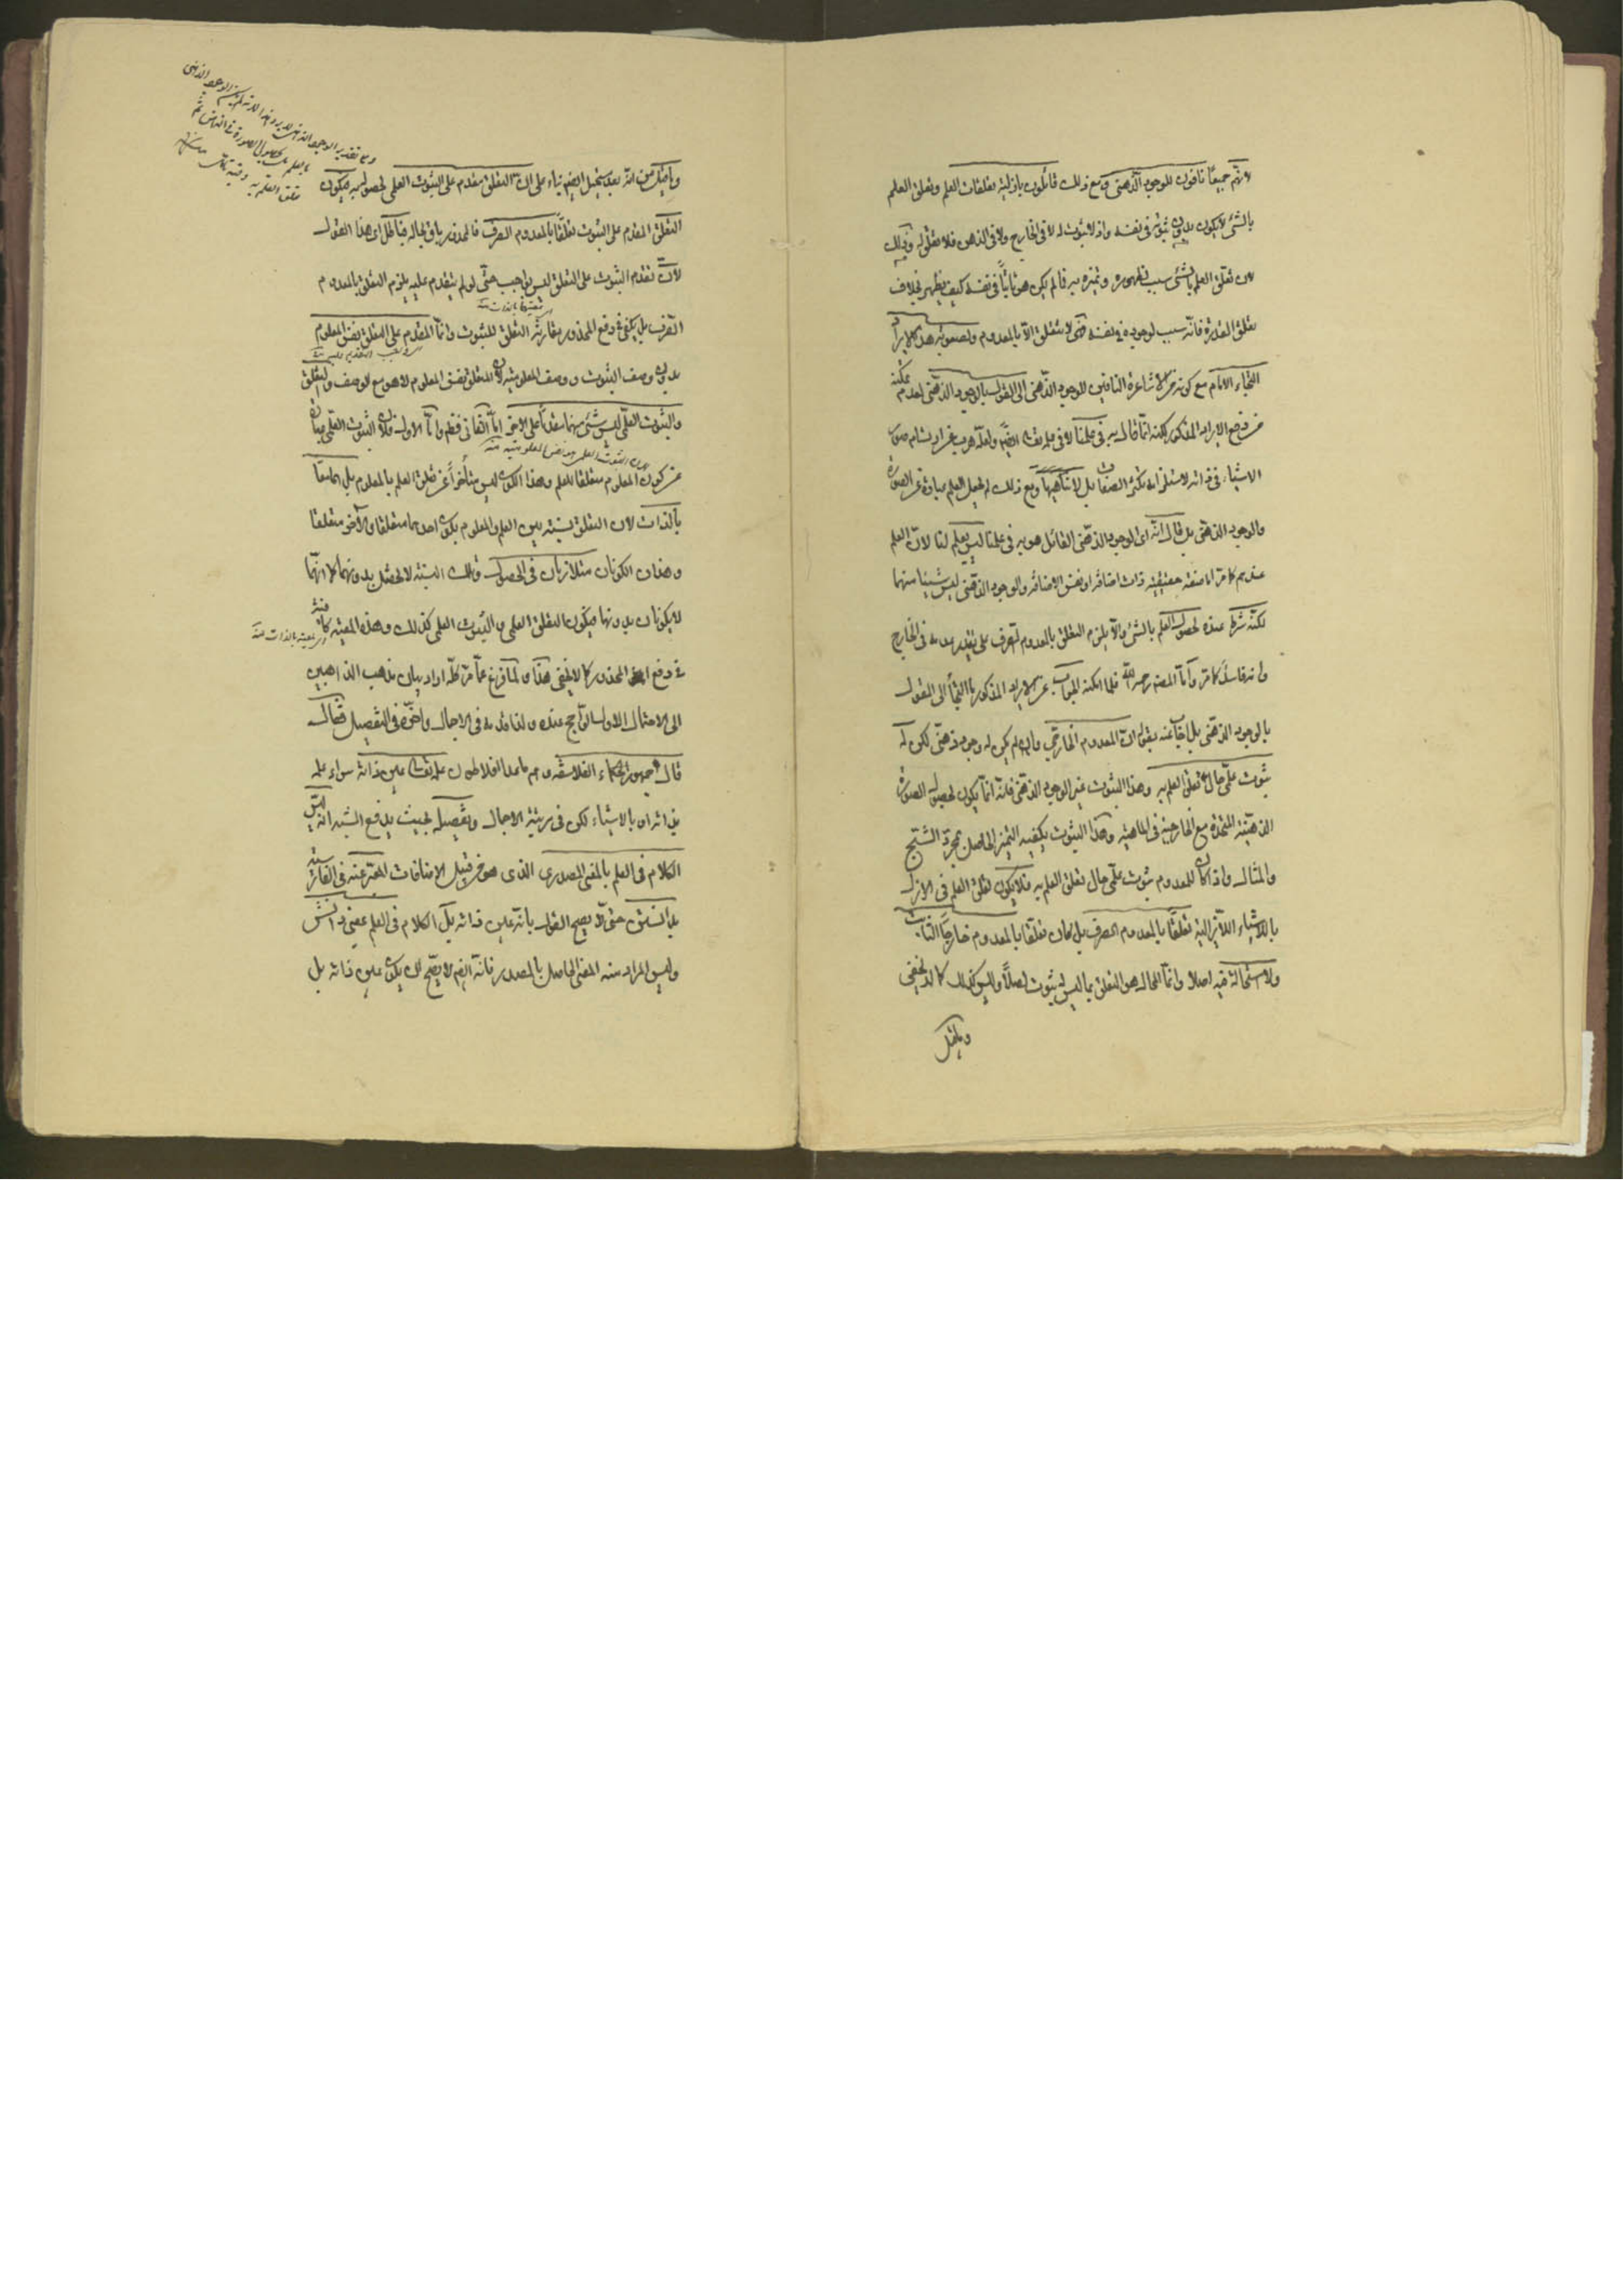 لانهم جميعا نافون للوجود الذهني ومع ذلك قائلون بازلية تعلقات العلم وتعلق العلم
بالشئ لا يكون بدون ثبوته في نفسه واذ لا ثبوت له لا في الخارج ولا في الذهن فلا تعلق له وذلك
لان تعلق العلم بالشئ سبب لظهوره وتميزه به فما لم يكن هو ثابتا في نفسه كيف يظهر بخلاف
تعلق القدرة فانه سبب لوجوده في نفسه فهي لا تتعلق الا بالمعدوم ولصعوبة هذا الايراد
التجاء الامام مع كونه من الاشاعرة النافين للوجود الذهني الى القول بالوجود الذهني لعدم تمكنه
من دفع الايراد المذكور لكنه انما قال به في علمنا لا في علمه تعالى ايضا ولعله هرب عن ارتسام صور
الاشياء في ذاته لاستلزامه تكثر الصفات بل لا تناهيها ومع ذلك لم يجعل العلم عبارة عن الصورة
والوجود الذهني بل قال انه اى الوجود الذهني القائل هو به في علمنا ليس بعلم لنا لان العلم
عندهم كما مر اما صفة حقيقية ذات اضافة او نفس الاضافة والوجود الذهني ليس شيئا منهما
لكنه شرط عنده لحصول العلم بالشئ والا يلزم التعلق بالمعدوم الصرف على تقدير عدمه في الخارج
وانه فاسد كما مر واما المصنف رحمه الله فلما امكنه الجواب عن الايراد المذكور ما التجأ الى القول
بالوجود الذهني بل اجاب عنه بقوله ان المعدوم الخارجي وان لم يكن له وجود ذهني لكن له
ثبوت علمي حال تعلق العلم به وهذا الثبوت غير الوجود الذهني فانه انما يكون لحصول الصورة
الذهنية المتحدة مع الخارجية في الماهية وهذا الثبوت يكفيه التميز الحاصل بمجرد الشبح
والمثال واذا كان للمعدوم ثبوت علمي حال تعلق العلم به فلا يكون تعلق العلم في الازل
بالاشياء اللايزالية تعلقا بالمعدوم الصرف بل كان تعلقا بالمعدوم خارجا الثابت
ولا استحالة فيه اصلا وانما المحال هو التعلق بما ليس له ثبوت اصلا وليس كذلك كما لا يخفى
وما قيل
وما قيل من انه بعد مستحيل ايضا بناء على ان التعلق مقدم على الثبوت العلمي لحصوله به فيكون
التعلق المقدم على الثبوت تعلقا بالمعدوم الصرف فالمحذور باق بحاله فباطل اى هذا القول
لان تقدم الثبوت على التعلق ليس بواجب حتى لو لم يتقدم عليه يلزم التعلق بالمعدوم
الصرف بل يكفي في دفع المحذور مقارنة التعلق للثبوت وانما المقدم على التعلق نفس المعلوم
بدون وصف الثبوت ووصف المعلومية لان المتعلق نفس المعلوم لا هو مع الوصف والتعلق
والثبوت العلمي ليس شئ منهما مقدما على الاخر اما الثاني فظاهر واما الاول فلان الثبوت العلمي عبارة
عن كون المعلوم متعلقا للعلم وهذا الكون ليس متأخرا عن تعلق العلم بالمعلوم بل هما معا
بالذات لان التعلق نسبة بين العلم والمعلوم بكون احدهما متعلقا والآخر متعلقا
وهذان الكونان متلازمان في الحصول وتلك النسبة لا تحصل بدونهما كما انهما
لا يكونان بدونها فيكون التعلق العلمي والثبوت العلمي كذلك وهذه المعية كافية
في دفع المحذور كما لا يخفى هذا ولما فرغ عما مر كله اراد بيان مذهب الذاهبين
الى الاحتمال الاول الراجح عنده ولذا قدمه في الاجمال واخره في التفصيل فقال
قال جمهور الحكماء الفلاسفة وهم ما عدا افلاطون علمه تعالى عين ذاته سواء علمه
بذاته او بالاشياء لكن في مرتبة الاجمال وتفصيله بحيث يدفع الشبه انه ليس
الكلام في العلم بالمعنى المصدري الذى هو من قبيل الاضافات المعبر عنه في الفارسية
بدانستن حتى لا يصح القول بانه عين ذاته بل الكلام في العلم بمعنى دانش
وليس المراد منه المعنى الحاصل بالمصدر فانه ايضا لا يصح ان يكون عين ذاته بل